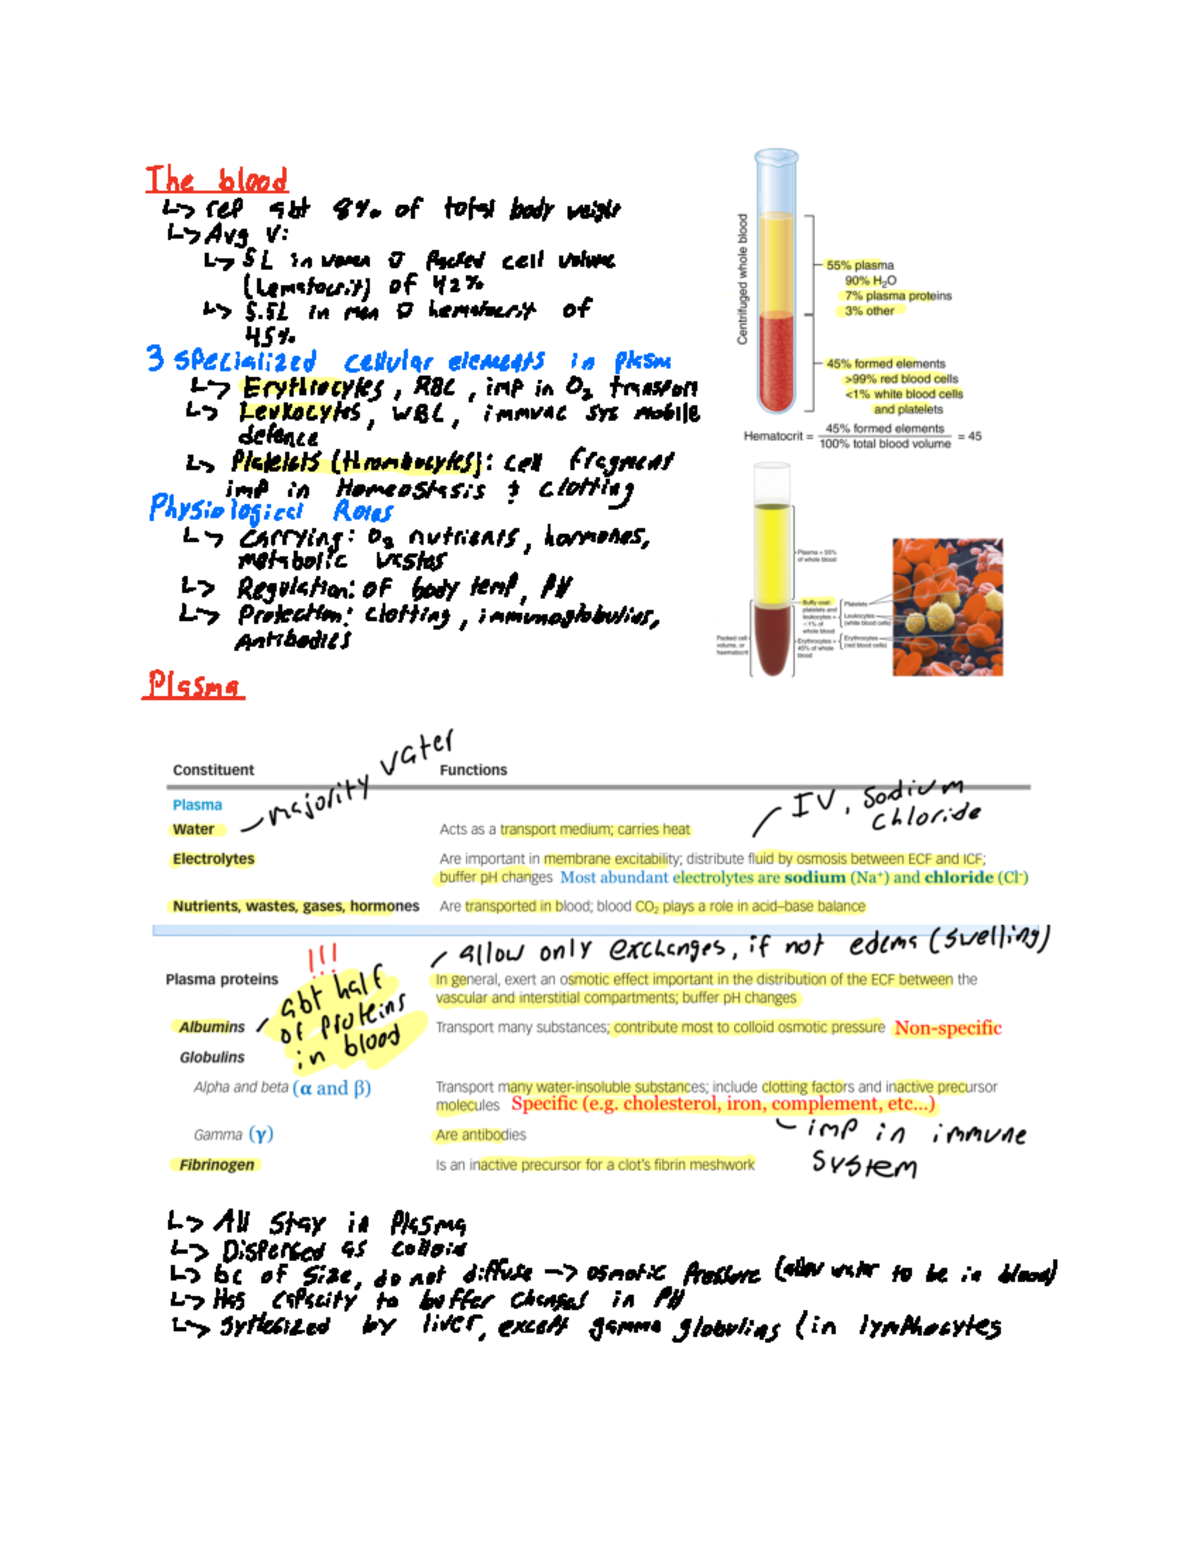 The blood
↳ rep abt 8% of total body weight
↳ Avg V:
↳ 5L in women Packed cell volume
(hematocrit) of 42%
↳ 5.5L in men hematocrit of
45%
3 specialized cellular elements in plasm
↳ Erythrocytes, RBC, imp in O₂ transport
↳ Leukocytes, WBC, immune sys mobile
defence
↳ Platelets (thrombocytes): cell fragment
imp in Homeostasis & clotting
Physiological Roles
↳ Carrying: O₂ nutrients, hormones,
metabolic wastes
↳ Regulation: of body temp, PH
↳ Protection: clotting, immunoglobulins,
Antibodies
Centrifuged whole blood
55% plasma
90% H₂O
7% plasma proteins
3% other
45% formed elements
>99% red blood cells
<1% white blood cells
and platelets
Hematocrit = 45% formed elements / 100% total blood volume = 45
Plasma = 55%
of whole blood
Buffy coat:
platelets and
leukocytes =
<1% of
whole blood
Platelets
Leukocytes
(white blood cells)
Packed cell
volume, or
haematocrit
Erythrocytes =
45% of whole
blood
Erythrocytes
(red blood cells)
Plasma
Constituent Functions
Plasma
majority water
IV, Sodium
chloride
Water Acts as a transport medium; carries heat
Electrolytes Are important in membrane excitability; distribute fluid by osmosis between ECF and ICF;
buffer pH changes Most abundant electrolytes are sodium (Na⁺) and chloride (Cl⁻)
Nutrients, wastes, gases, hormones Are transported in blood; blood CO₂ plays a role in acid–base balance
allow only exchanges, if not edema (swelling)
!!!
Plasma proteins In general, exert an osmotic effect important in the distribution of the ECF between the
vascular and interstitial compartments; buffer pH changes
abt half
of proteins
in blood
Albumins Transport many substances; contribute most to colloid osmotic pressure Non-specific
Globulins
Alpha and beta (α and β) Transport many water-insoluble substances; include clotting factors and inactive precursor
molecules Specific (e.g. cholesterol, iron, complement, etc...)
Gamma (γ) Are antibodies
imp in immune
system
Fibrinogen Is an inactive precursor for a clot's fibrin meshwork
↳ All stay in Plasma
↳ Dispersed as colloid
↳ bc of size, do not diffuse → osmotic Pressure (allow water to be in blood)
↳ Has capacity to buffer changes in PH
↳ Sythesized by liver, except gamma globulins (in lymphocytes